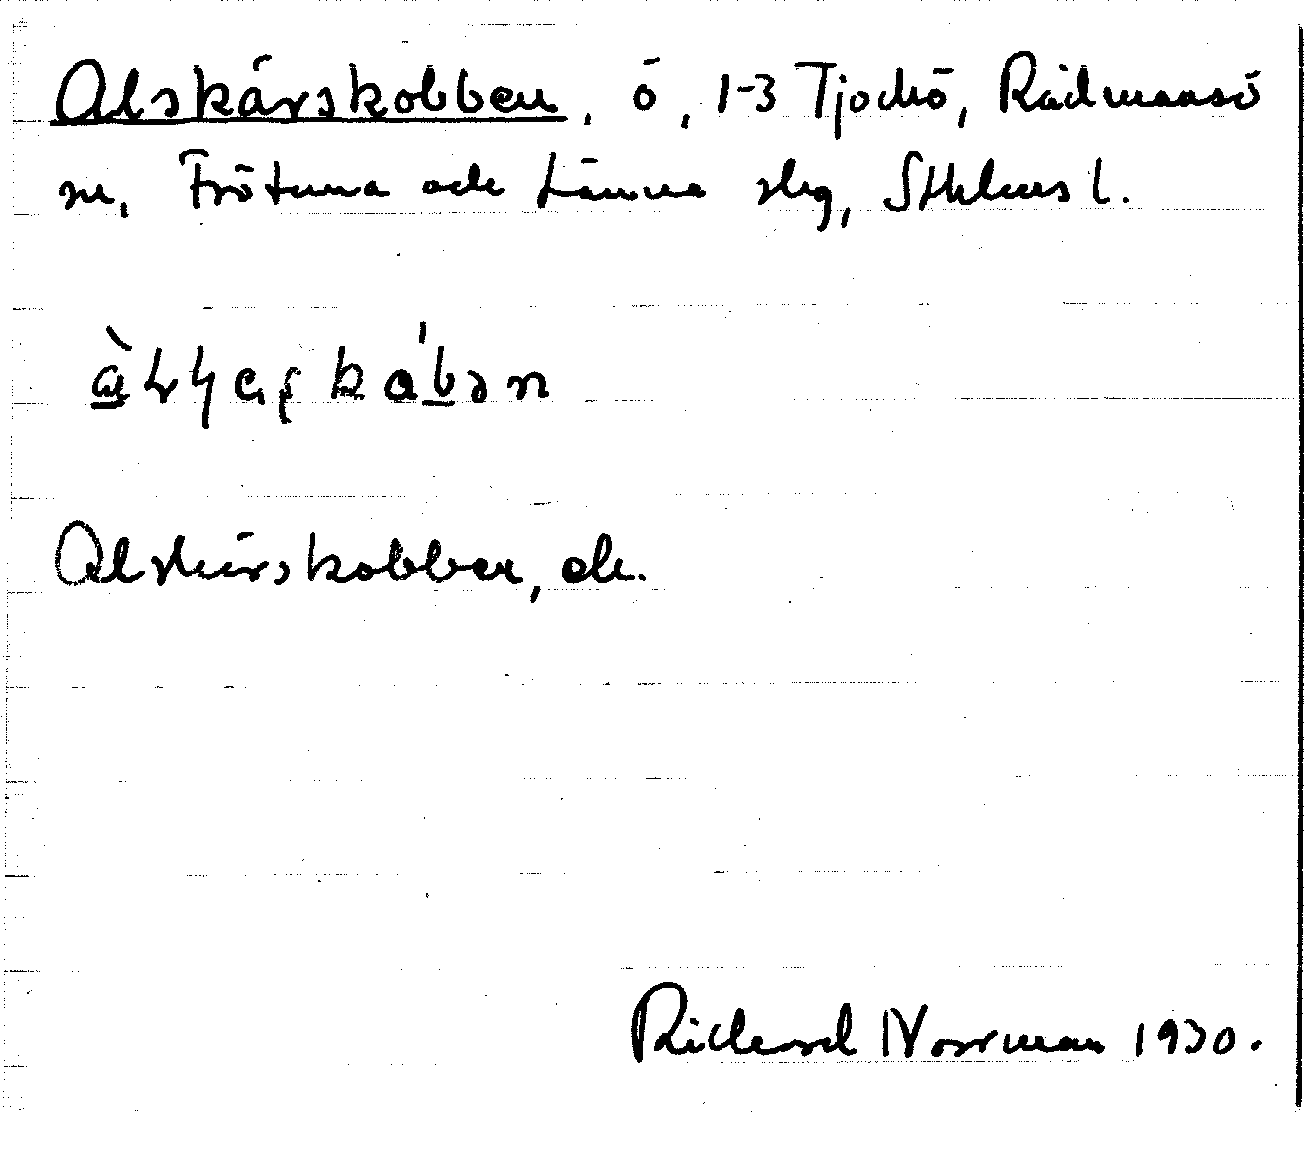 Alskärskobben, ö, 1-3 Tjockö, Rådmansö
sn, Frötuna och Länna slg, Sthlms l.
Alskärskobben, ek.
Richard Norrman 1930.